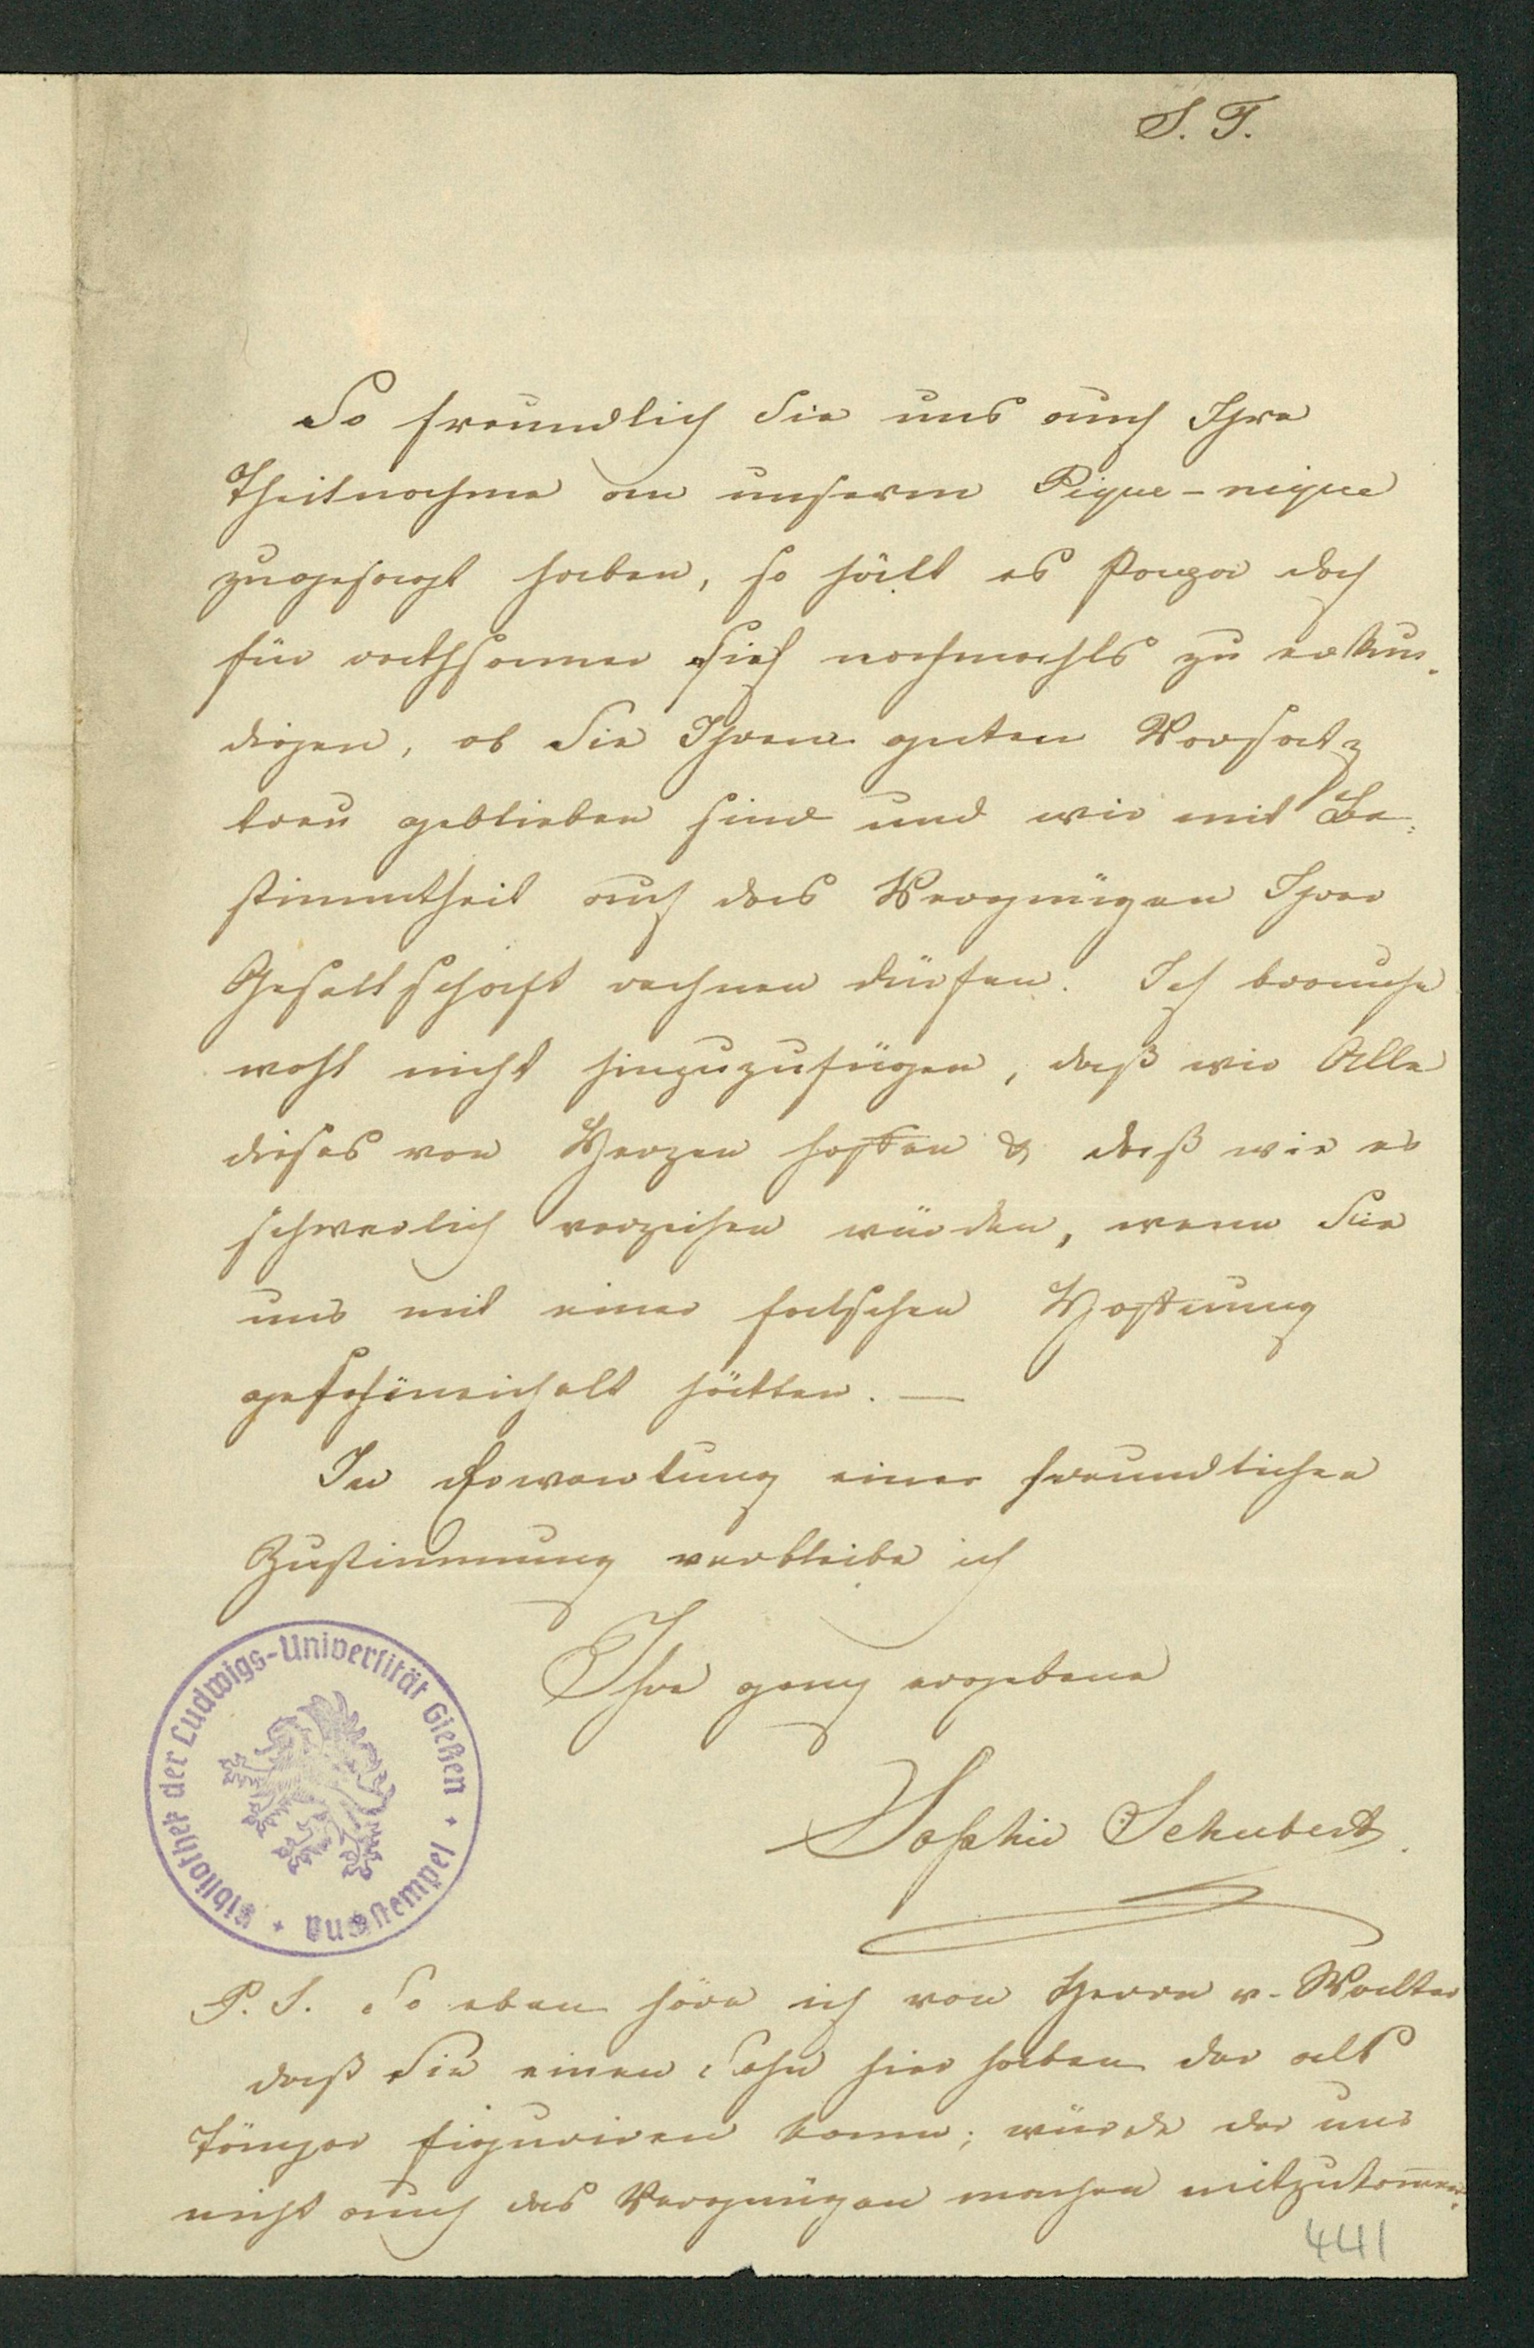 S. T.
So freundlich Sie uns auch Ihre
Theilnahme an unserem Pique-nique
zugesagt haben, so hält es Papa doch
für rathsamer sich nochmahls zu erkun-
digen, ob Sie Ihrem guten Vorsatz
treu geblieben sind und wir mit Be-
stimmtheit auf das Vergnügen Ihrer
Gesellschaft rechnen dürfen. Ich brauche
wohl nicht hinzuzufügen, daß wir Alle
dieses von Herzen hoffen & daß wir es
schwerlich verzeihen würden, wenn Sie
uns mit einer falschen Hoffnung
geschmeichelt hätten. —
In Erwartung einer freundlichen
Zustimmung verbleibe ich
Ihre ganz ergebene
Sophie Schubert.
Bibliothek der Ludwigs-Universität Gießen • Buchstempel •
P. S. So eben höre ich von Herrn v. Walter
daß Sie einen Sohn hier haben der als
Tänzer figuriren kann; würde der uns
nicht auch das Vergnügen machen mitzukommen?
441